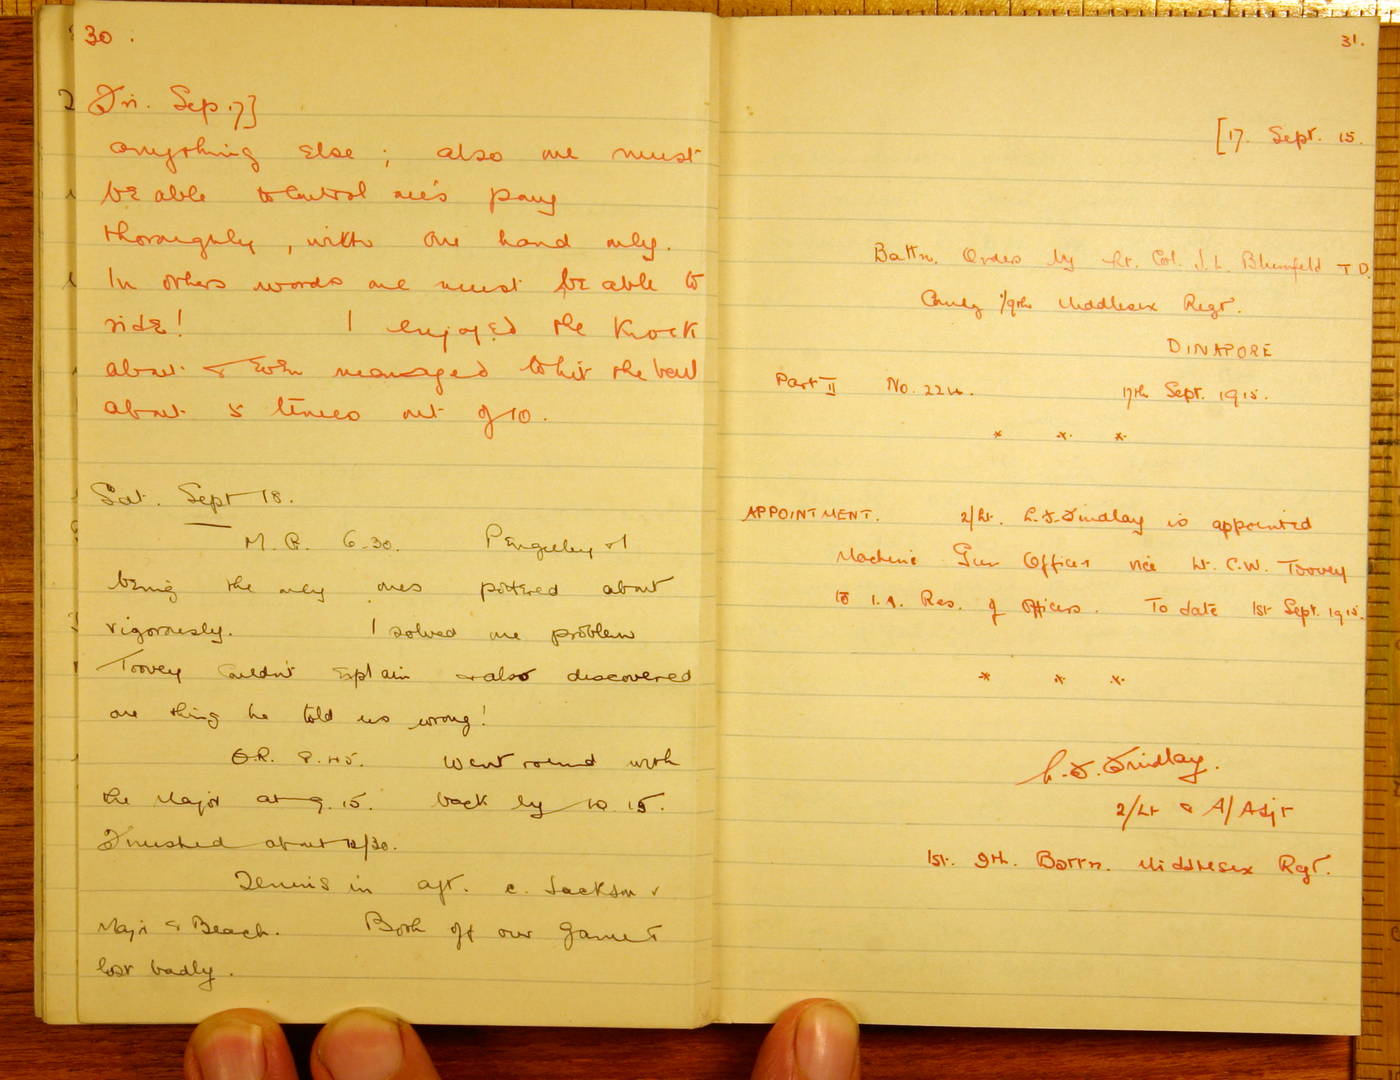 30.
Fri. Sep. 17]
anything else ; also one must
be able to control one's pony
thoroughly, with one hand only.
In others words one must be able to
ride! I enjoyed the knock
about & even managed to hit the ball
about 5 times out of 10.
Sat. Sept 18.
M.G. 6.30. Pengelley & I
being the only ones pottered about
vigorously. I solved one problem
Toovey couldn't explain & also discovered
one thing he told us wrong!
O.R. 8.45. Went round with
the Major at 9.15. back by 10.15.
Finished about 12/30.
Tennis in aft. c. Jackson v
Major & Beach. Both off our game &
lost badly.
31.
[17. Sept. 15.
Battn. Orders by Lt. Col. J.L. Blumfeld T D.
Comdg 1/9th Middlesex Regt.
DINAPORE
Part II No. 224. 17th Sept. 1915.
* * *
APPOINTMENT. 2/Lt. L.F. Findlay is appointed
Machine Gun Officer vice Lt. C.W. Toovey
to I.A. Res. of Officers. To date 1st Sept. 1915.
* * *
L.F. Findlay.
2/Lt & A/Adjt
1st. 9th. Battn. Middlesex Regt.